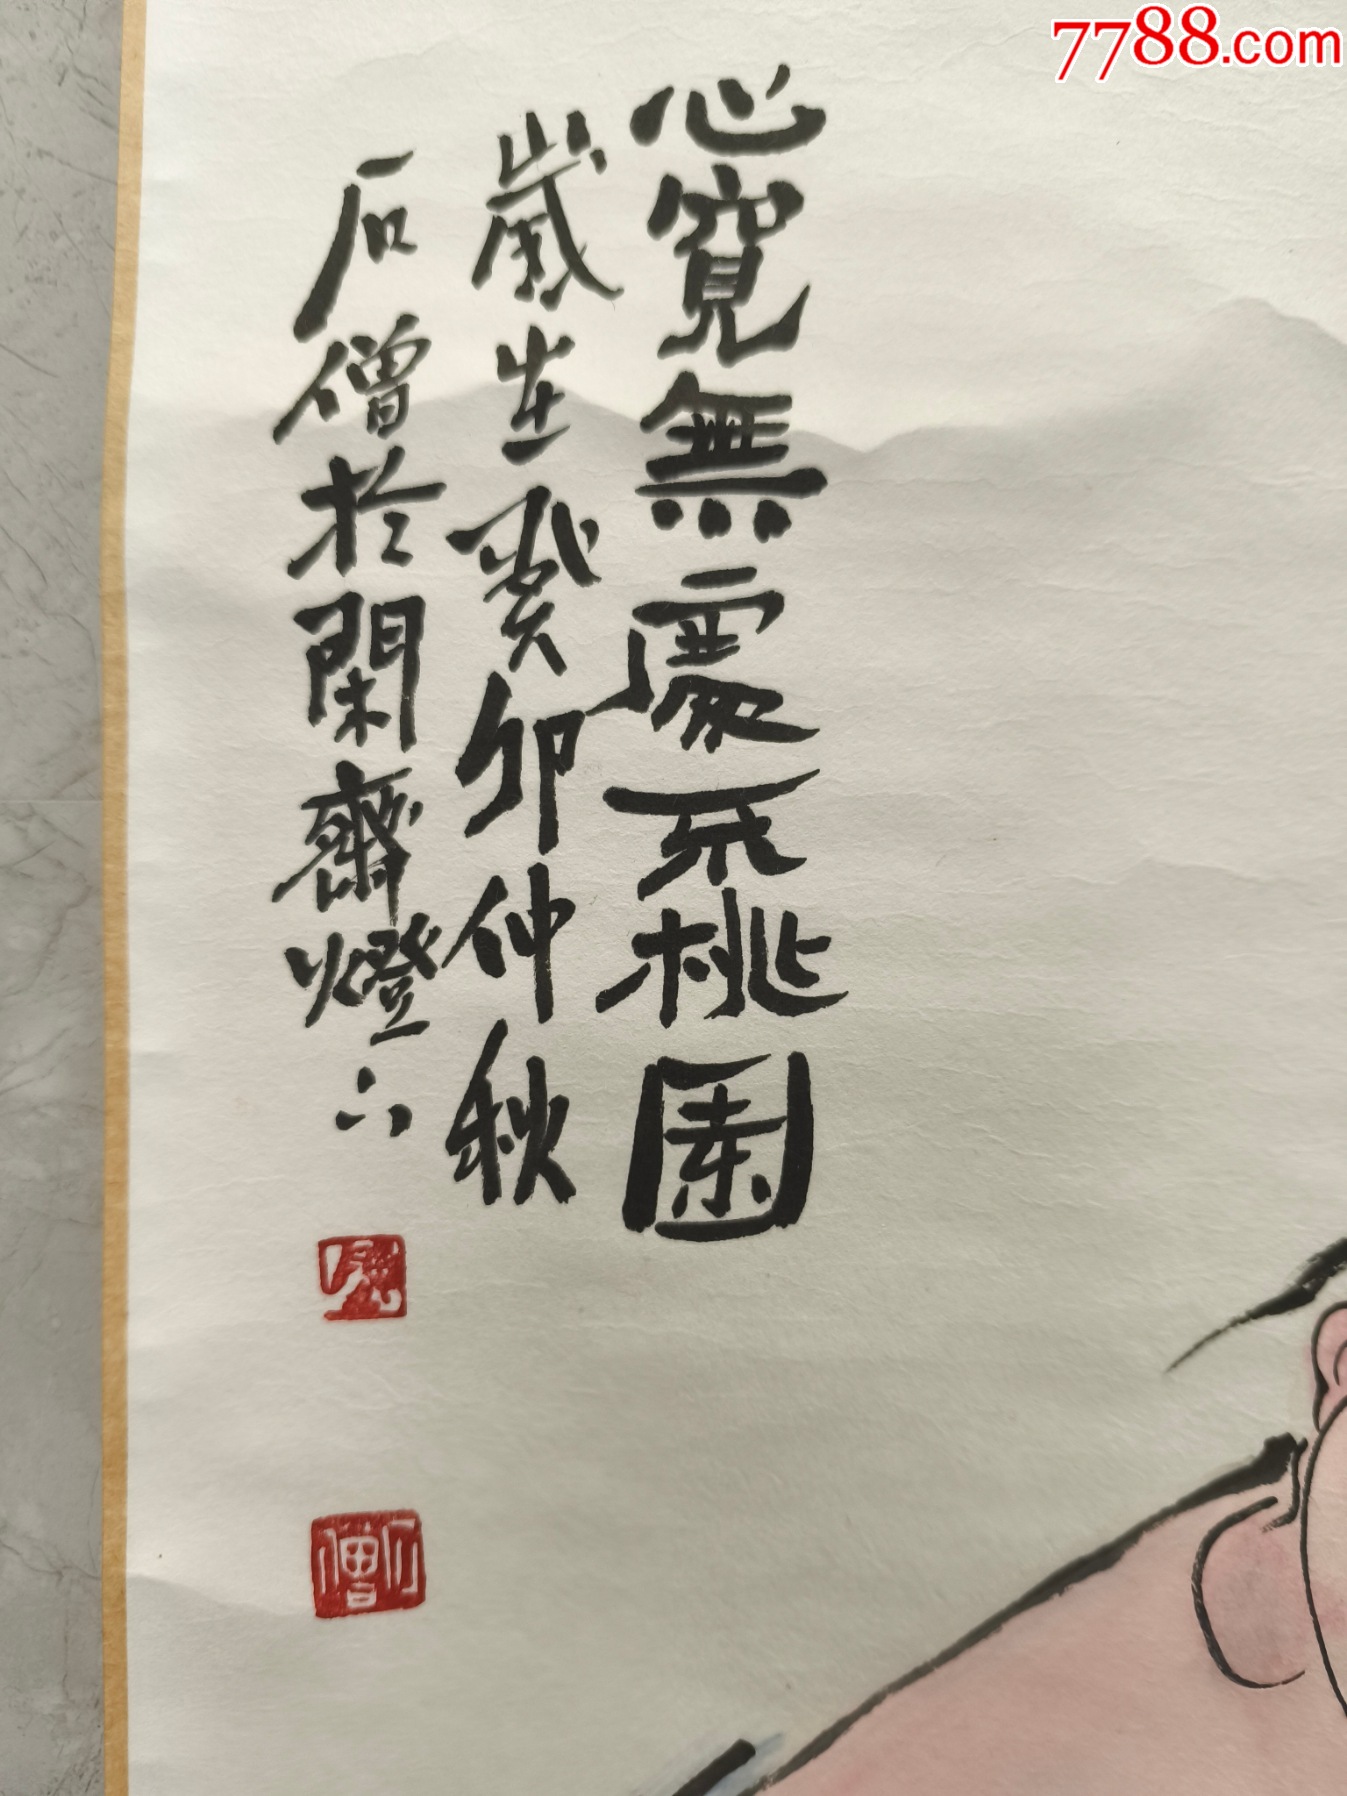 7788.com
心寬無處不桃園
歲在癸卯仲秋
石僧於閑齋燈下
石僧